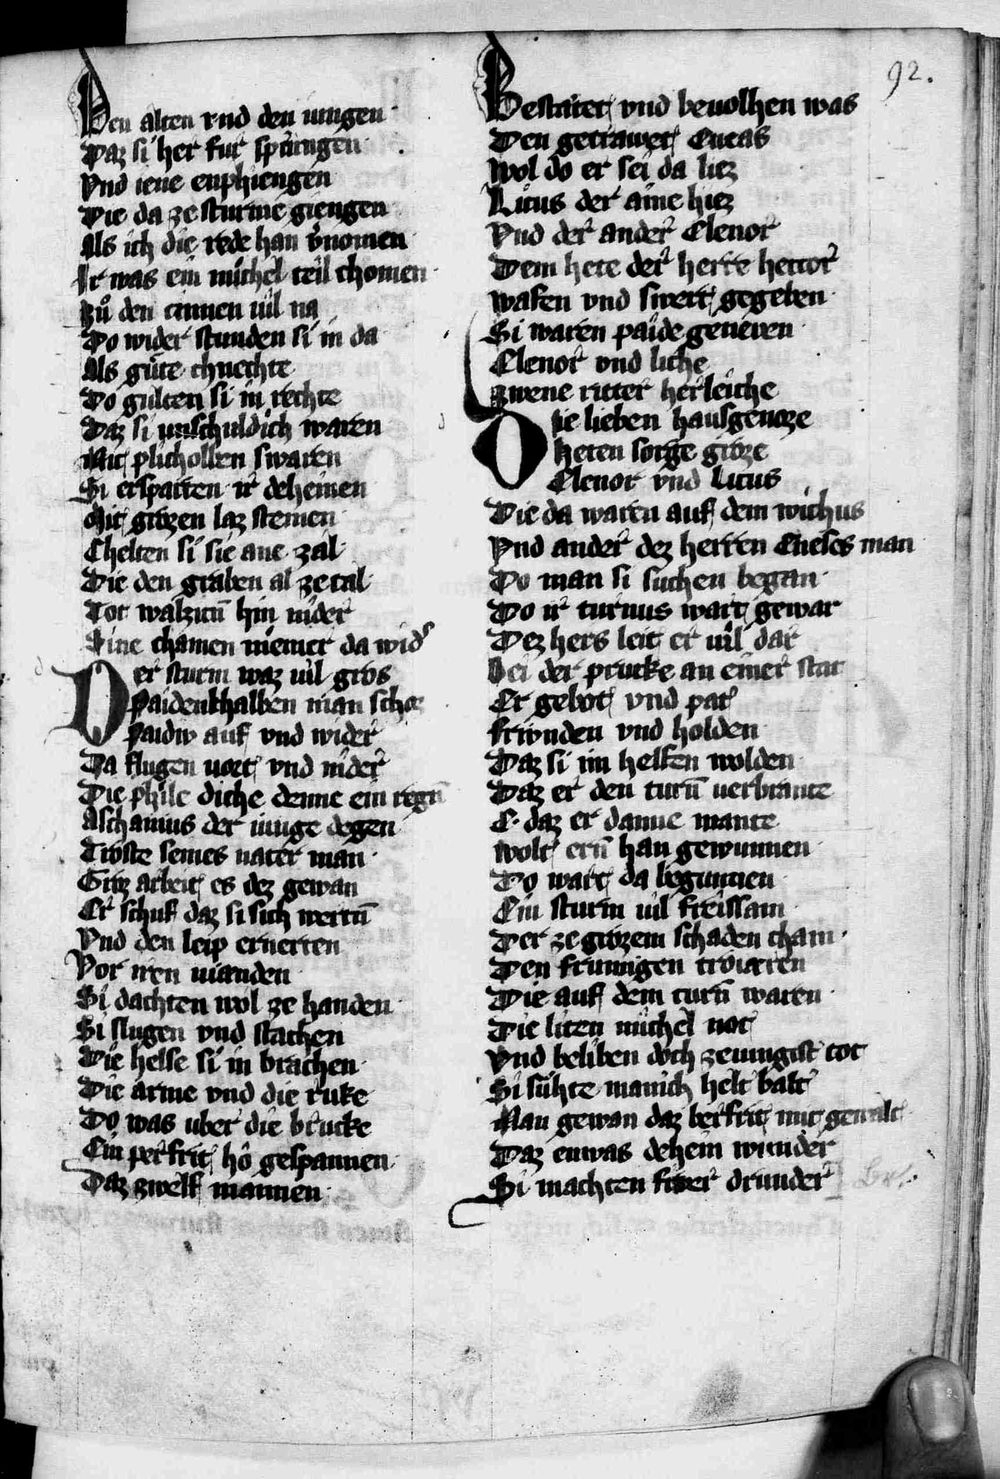 92.
Den alten vnd den iungen
Daz si her fur sprungen
Vnd iene enphiengen
Die da ze sturme giengen
Als ich die rede han v̾nomen
Ir was ein michel teil chomen
Zů den cinnen vil na
Do wider stunden si in da
Als gůte chnechte
Do gulten si in rechte
Daz si vnschuldich waren
Mit plicholben swaren
Si ersparten ir deheinen
Mit grozen laz steinen
Chelten si sie ane zal
Die den graben al ze tal
Tot walzitn̄ hin nider
Sine chamen niemer da wid̾
Der sturm waz vil gros
Paidenthalben man schoz
Paidiv auf vnd wider
Da flugen vort vnd nider
Die phile diche denne ein regn̄
Aschanius der iunge degen
Troste seines vater man
Groz arbeit es dez gewan
Er schuf daz si sich wertn̄
Vnd den leip ernerten
Vor iren vianden
Si dachten wol ze handen
Si slugen vnd stachen
Die helse si in brachen
Die arme vnd die ruke
Do was uber die brucke
Ein perfrit ho gespannen
Daz zwelf mannen
Bestatet vnd beuolhen was
Den getrawet Eneas
Wol do er sei da liez
Licus der aine hiez
Vnd der ander Elenor
Dem hete der herre hector
Wafen vnd swert gegeben
Si waren paide generen
Elenor vnd liche
Zwene ritter herleiche
Die lieben hausgenoze
Heten sorge groze
Elenor vnd Licus
Die da waren auf dem wichus
Vnd ander dez herren Eneses man
Do man si suchen began
Do ir turnus wart gewar
Dez hers leit er vil dar
Bei der prucke an einer stat
Er gebot vnd pat
friwnden vnd holden
Daz si im helfen wolden
Daz er den turn̄ verbrante
E daz er danne wante
Wolt ern̄ han gewunnen
Do wart da begunnen
Ein sturm vil freissam
Der ze grozem schaden cham
Den frumigen troiæren
Die auf dem turn̄ waren
Die liten michel not
Vnd beliben doch zeiungist tot
Si sůhte manich helt balt
Man gewan daz berfrit mit gewalt
Daz enwas dehein wunder
Si machten fiwer drunder